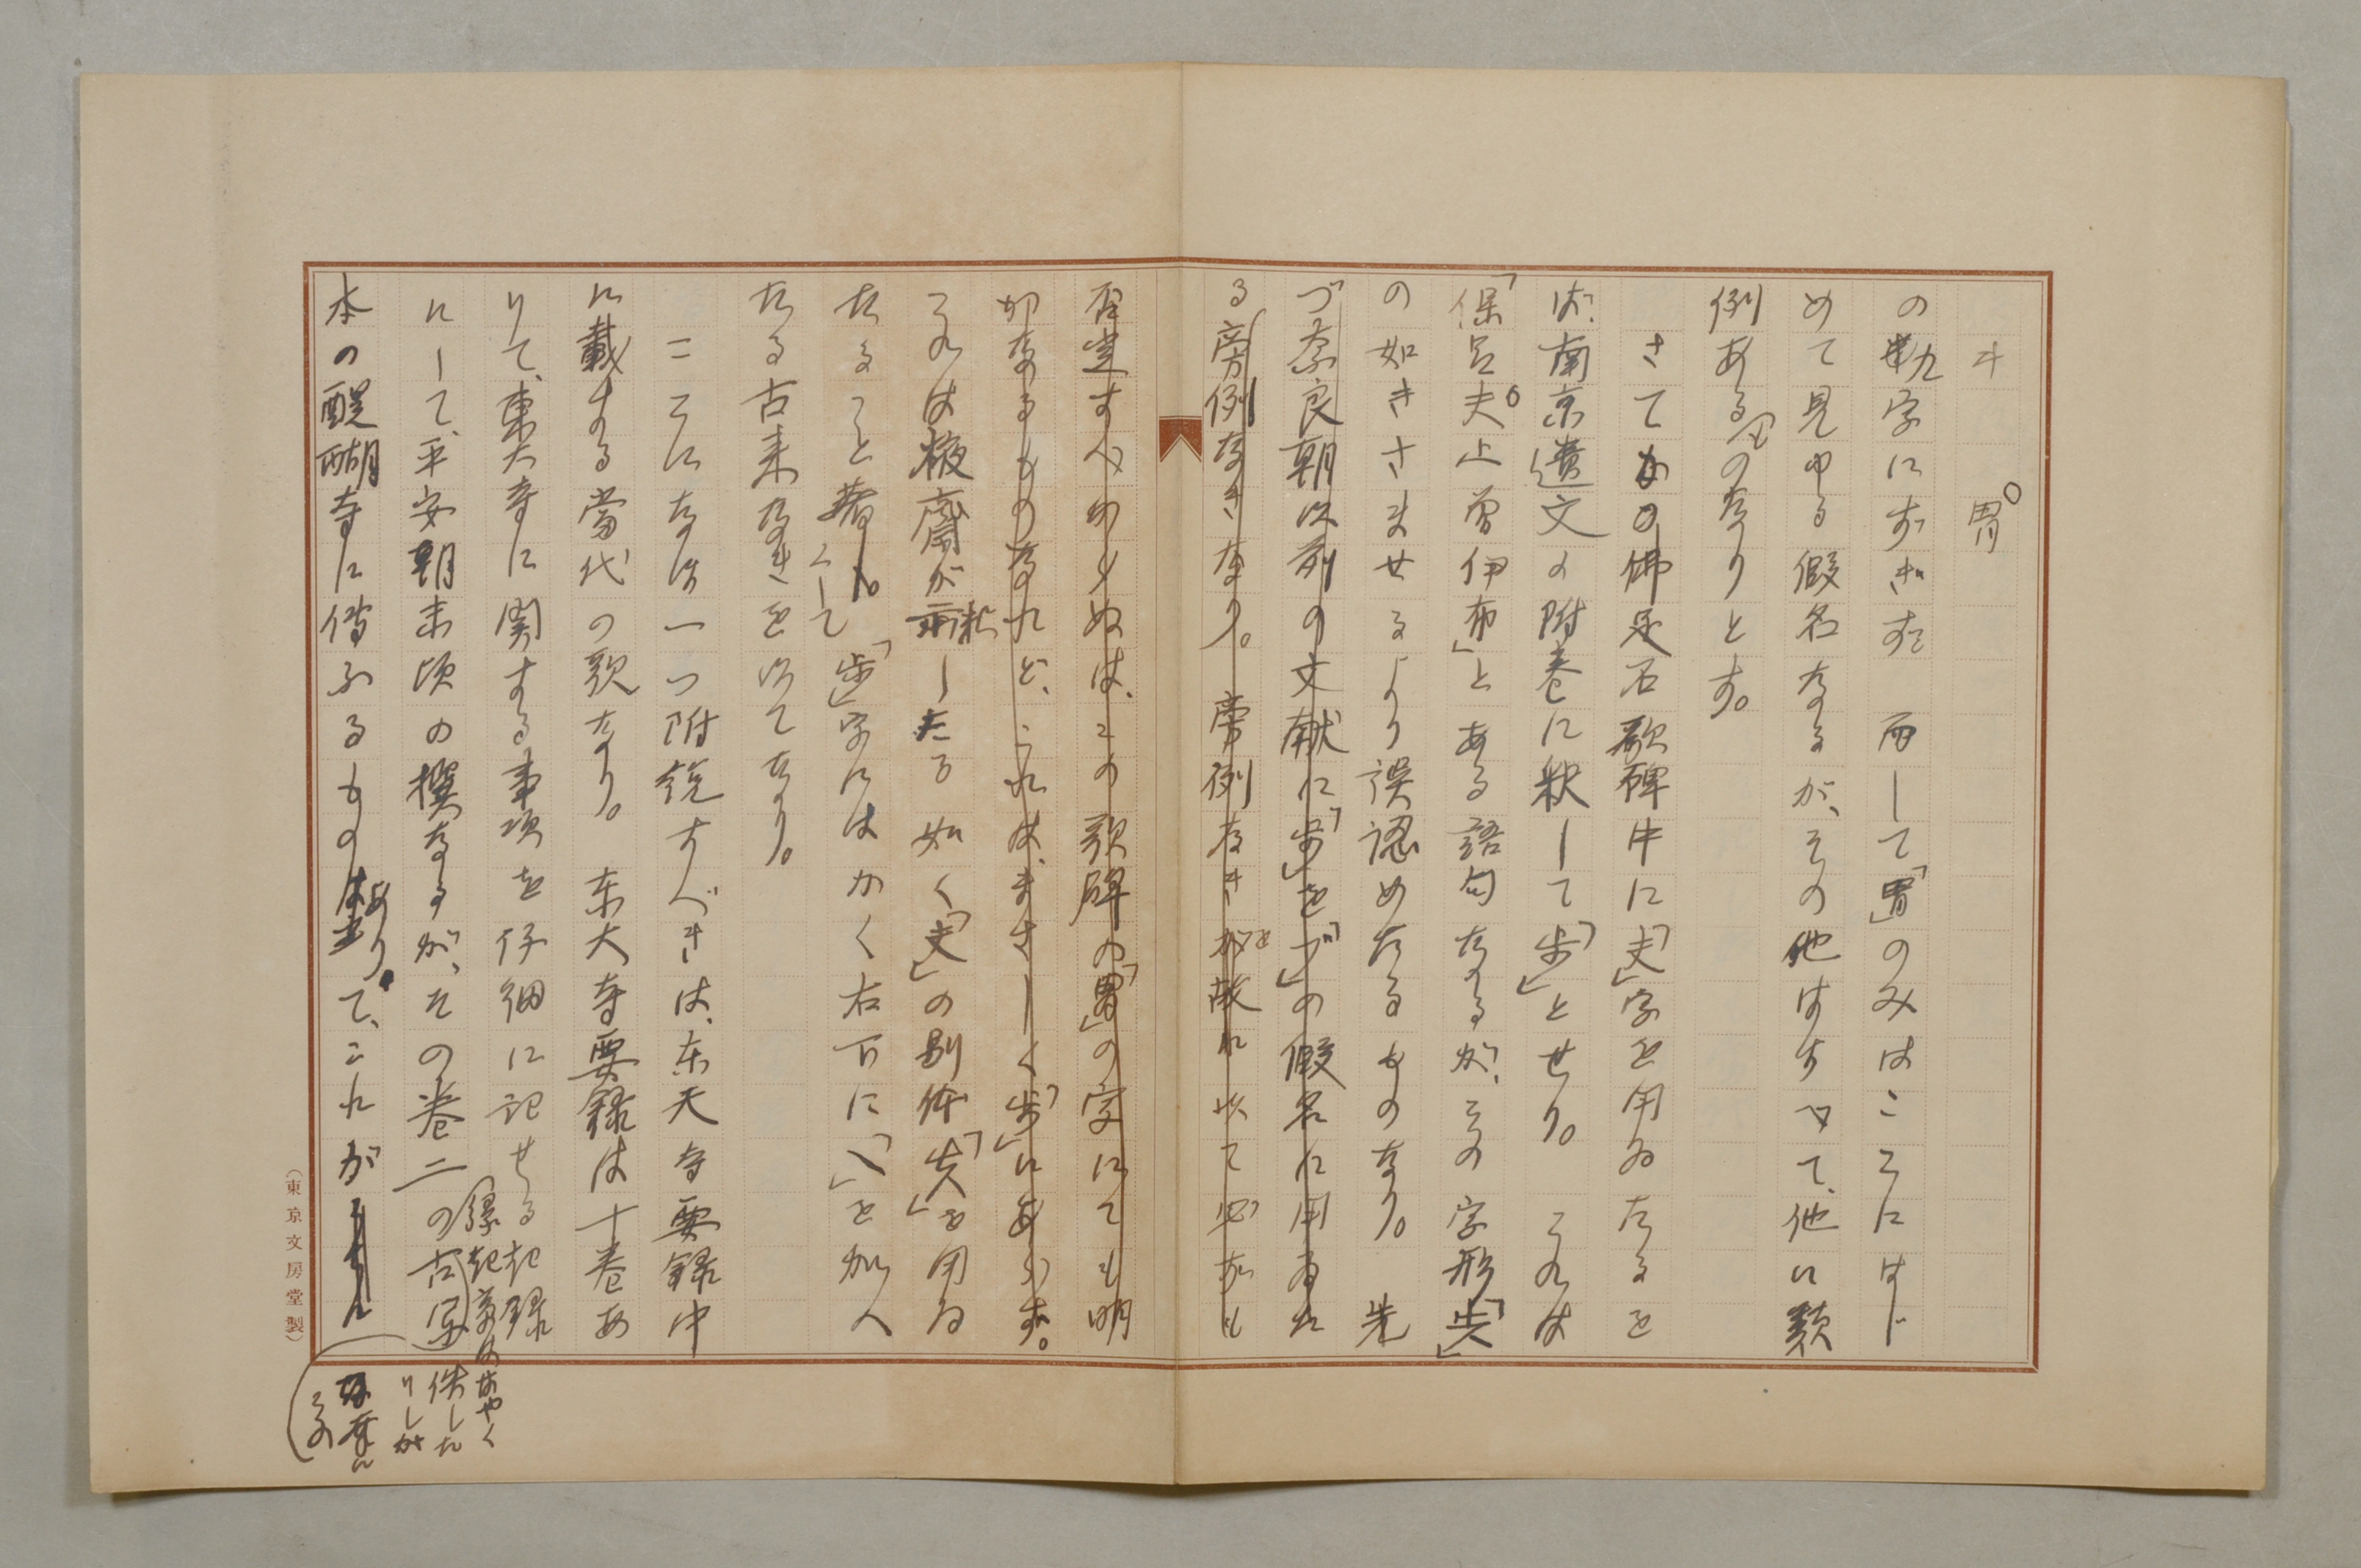 ヰ 胃
の勲字にすぎず 而して「胃」のみはこゝにはじ
めて見ゆる假名なるが、その他はすべて、他に類
例あるものなりとす。
さてかの佛足石歌碑中に「夫」字を用ゐたるを
ば、南京遺文の附巻に釈して「歩」とせり。 こゝは
「保呂夫止曽伊布」とある語句なるが、その字形「㆑」
の如きさませるより誤認めたるものなり。 先
づ奈良朝以前の文献に、「歩」を「ブ」の假名に用ゐた
る旁例なきなり。 旁例なきが故に以て必ずしも
否定すべからぬは、この歌碑の「胃」の字にても明
かなるものなれど、これは、まさしく「歩」にあらず。
こゝは棭齋が釈したる如く「夫」の別体を用ゐ
たること著し。くして「歩」字にはかく右下に、「乀」を加へ
たる古来なきを以てなり。
こゝになほ一つ附説すべきは、東大寺要録中
に載する當代の歌なり。 東大寺要録は十巻あ
りて、東大寺に関する事項を仔細に記せる記録
にして、平安朝末頃の撰なるが、その巻二の古写
縁起章ははやく
佚した
りしが
本の醍醐寺に傳ふるものあり。て、これが
その
(東京文房堂製)